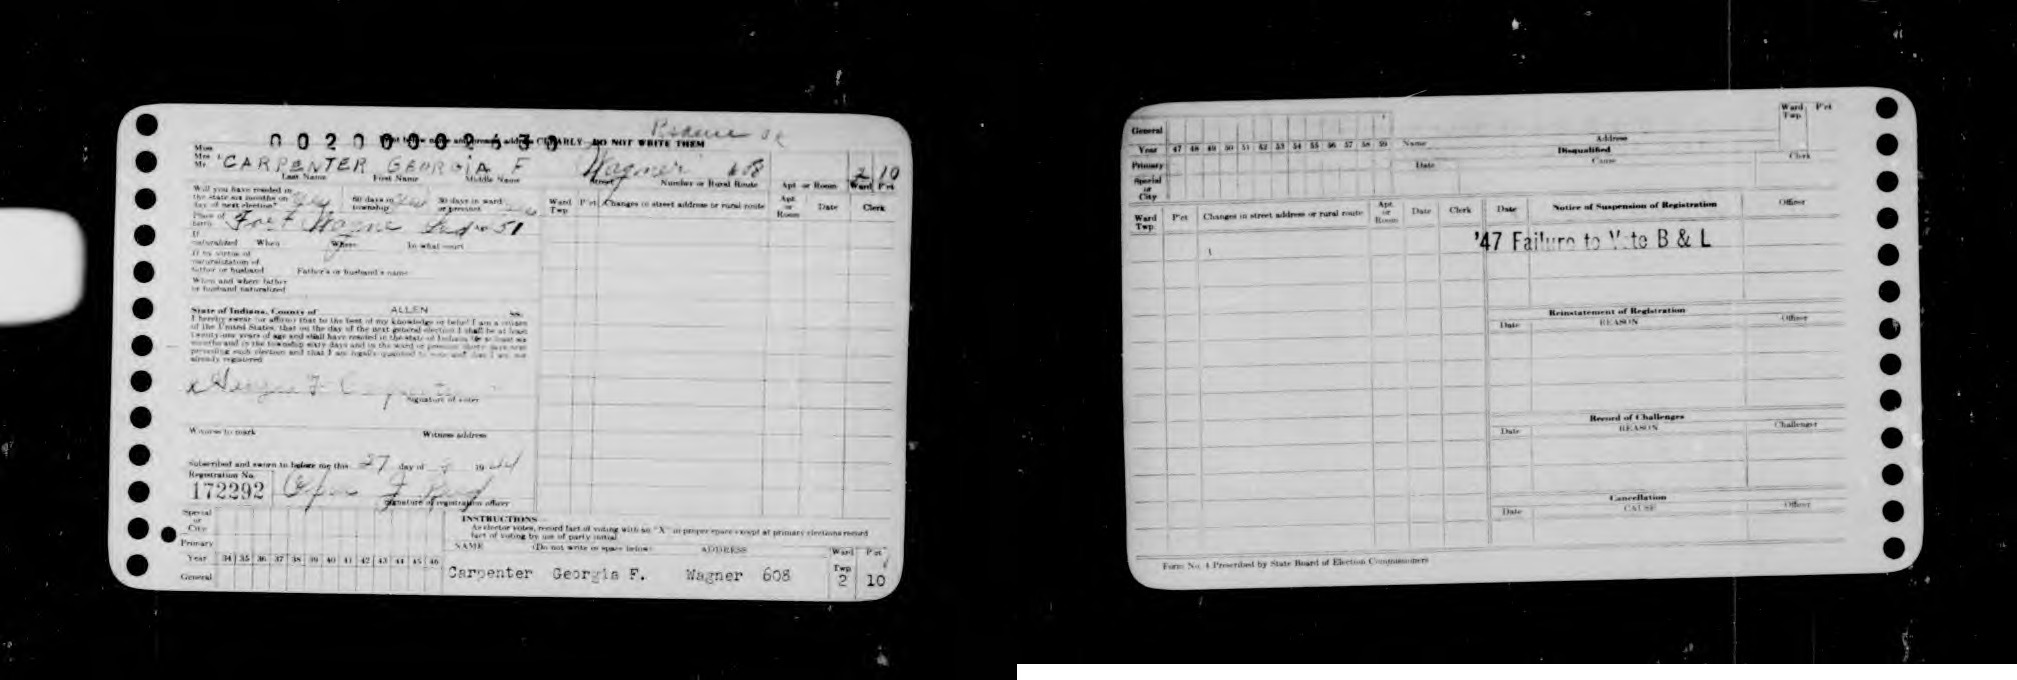 0 0 2 0 0 0 0 2 4 3 0
Print below name and present address CLEARLY—DO NOT WRITE THEM
Miss
Mrs.
Mr. CARPENTER GEORGIA F Wagner 608 2 10
Last Name First Name Middle Name Street Number or Rural Route Apt. or Room Ward P'ct
Will you have resided in
the state six months on
day of next election? 60 days in township 30 days in ward or precinct
Ward Twp. P'ct Changes in street address or rural route Apt. or Room Date Clerk
Place of
birth Fort Wayne Ind 51
If
naturalized When Where In what court
If by virtue of
naturalization of
father or husband Father's or husband's name
When and where father
or husband naturalized
State of Indiana, County of ALLEN ss.
I hereby swear (or affirm) that to the best of my knowledge or belief I am a citizen
of the United States, that on the day of the next general election I shall be at least
twenty-one years of age and shall have resided in the state of Indiana for at least six
months and in the township sixty days and in the ward or precinct thirty days next
preceding such election and that I am legally qualified to vote and that I am not
already registered
x Georgia F. Carpenter
Signature of voter
Witness to mark Witness address
Subscribed and sworn to before me this 27 day of 1944
Registration No.
172292
Signature of registration officer
Special
or
City
Primary
Year 34 35 36 37 38 39 40 41 42 43 44 45 46
General
INSTRUCTIONS
As elector votes, record fact of voting with an "X" in proper space except at primary elections record
fact of voting by use of party initial
NAME (Do not write in space below) ADDRESS Ward Twp P'ct
Carpenter Georgia F. Wagner 608 2 10
General
Year 47 48 49 50 51 52 53 54 55 56 57 58 59 Name Address Ward Twp. P'ct
Primary
Disqualified
Date Cause Clerk
Special
or
City
Ward Twp. P'ct Changes in street address or rural route Apt. or Room Date Clerk
Date Notice of Suspension of Registration Officer
'47 Failure to Vote B & L
Reinstatement of Registration
Date REASON Officer
Record of Challenges
Date REASON Challenger
Cancellation
Date CAUSE Officer
Form No. 4 Prescribed by State Board of Election Commissioners